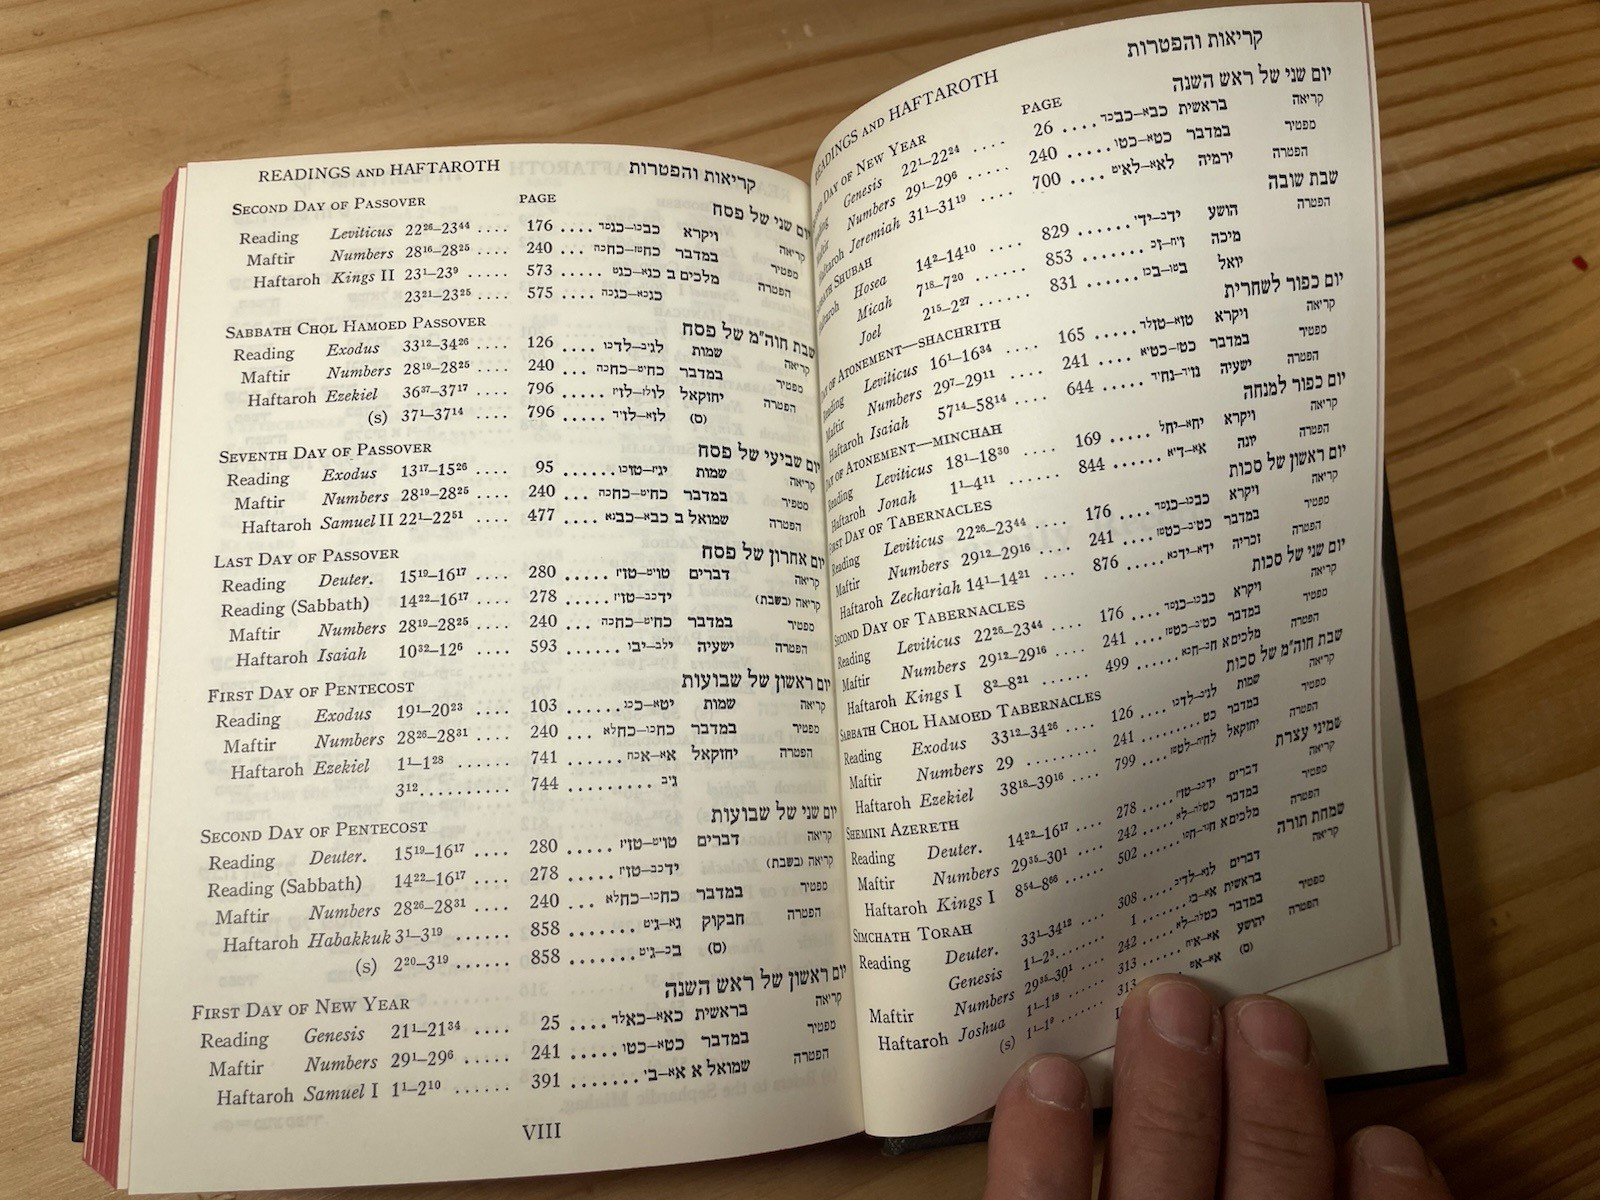 READINGS AND HAFTAROTH קריאות והפטרות
SECOND DAY OF PASSOVER PAGE יום שני של פסח
Reading Leviticus 22²⁶–23⁴⁴ .... 176 .... כבכו–כגמד ויקרא קריאה
Maftir Numbers 28¹⁶–28²⁵ .... 240 .... כחטז–כחכה במדבר מפטיר
Haftaroh Kings II 23¹–23⁹ ..... 573 ....... כגא–כגט מלכים ב הפטרה
23²¹–23²⁵ .... 575 ... כגכא–כגכה
SABBATH CHOL HAMOED PASSOVER שבת חוה״מ של פסח
Reading Exodus 33¹²–34²⁶ .... 126 .... לגיב–לדכו שמות קריאה
Maftir Numbers 28¹⁹–28²⁵ .... 240 .... כחיט–כחכה במדבר מפטיר
Haftaroh Ezekiel 36³⁷–37¹⁷ .... 796 .... לולז–לזיז יחזקאל הפטרה
(s) 37¹–37¹⁴ .... 796 .... לזא–לזיד (ס)
SEVENTH DAY OF PASSOVER יום שביעי של פסח
Reading Exodus 13¹⁷–15²⁶ .... 95 .... יגיז–טוכו שמות קריאה
Maftir Numbers 28¹⁹–28²⁵ .... 240 .... כחיט–כחכה במדבר מפטיר
Haftaroh Samuel II 22¹–22⁵¹ .... 477 .... כבא–כבנא שמואל ב הפטרה
LAST DAY OF PASSOVER יום אחרון של פסח
Reading Deuter. 15¹⁹–16¹⁷ .... 280 ..... טויט–טזיז דברים קריאה
Reading (Sabbath) 14²²–16¹⁷ .... 278 ..... ידכב–טזיז קריאה (בשבת)
Maftir Numbers 28¹⁹–28²⁵ .... 240 .... כחיט–כחכה במדבר מפטיר
Haftaroh Isaiah 10³²–12⁶ .... 593 ..... ילב–יבו ישעיה הפטרה
FIRST DAY OF PENTECOST יום ראשון של שבועות
Reading Exodus 19¹–20²³ .... 103 ..... יטא–ככג שמות קריאה
Maftir Numbers 28²⁶–28³¹ .... 240 .... כחכו–כחלא במדבר מפטיר
Haftaroh Ezekiel 1¹–1²⁸ ...... 741 ...... אא–אכח יחזקאל הפטרה
3¹².......... 744 ......... גיב
SECOND DAY OF PENTECOST יום שני של שבועות
Reading Deuter. 15¹⁹–16¹⁷ .... 280 ..... טויט–טזיז דברים קריאה
Reading (Sabbath) 14²²–16¹⁷ .... 278 ..... ידכב–טזיז קריאה (בשבת)
Maftir Numbers 28²⁶–28³¹ .... 240 .... כחכו–כחלא במדבר מפטיר
Haftaroh Habakkuk 3¹–3¹⁹ ...... 858 ....... גא–גיט חבקוק הפטרה
(s) 2²⁰–3¹⁹ ...... 858 ....... בכ–גיט (ס)
FIRST DAY OF NEW YEAR יום ראשון של ראש השנה
Reading Genesis 21¹–21³⁴ .... 25 .... כאא–כאלד בראשית קריאה
Maftir Numbers 29¹–29⁶ .... 241 ..... כטא–כטו במדבר מפטיר
Haftaroh Samuel I 1¹–2¹⁰ ...... 391 ....... אא–בי שמואל א הפטרה
VIII
READINGS AND HAFTAROTH קריאות והפטרות
DAY OF NEW YEAR PAGE יום שני של ראש השנה
Genesis 22¹–22²⁴ .... 26 .... כבא–כבכד בראשית קריאה
Numbers 29¹–29⁶ ..... 240 ..... כטא–כטו במדבר מפטיר
Haftaroh Jeremiah 31¹–31¹⁹ .... 700 .... לאא–לאיט ירמיה הפטרה
SHUBAH שבת שובה
Hosea 14²–14¹⁰ .... 829 ..... ידב–ידי הושע הפטרה
Micah 7¹⁸–7²⁰ ..... 853 ..... זיח–זכ מיכה
Joel 2¹⁵–2²⁷ ...... 831 ...... בטו–בכז יואל
DAY OF ATONEMENT—SHACHRITH יום כפור לשחרית
Reading Leviticus 16¹–16³⁴ .... 165 .... טזא–טזלד ויקרא קריאה
Maftir Numbers 29⁷–29¹¹ .... 241 .... כטז–כטיא במדבר מפטיר
Haftaroh Isaiah 57¹⁴–58¹⁴ .... 644 .... נזיד–נחיד ישעיה הפטרה
DAY OF ATONEMENT—MINCHAH יום כפור למנחה
Reading Leviticus 18¹–18³⁰ .... 169 ..... יחא–יחל ויקרא קריאה
Haftaroh Jonah 1¹–4¹¹ ...... 844 ...... אא–דיא יונה הפטרה
FIRST DAY OF TABERNACLES יום ראשון של סכות
Reading Leviticus 22²⁶–23⁴⁴ .... 176 .... כבכו–כגמד ויקרא קריאה
Maftir Numbers 29¹²–29¹⁶ .... 241 .... כטיב–כטטז במדבר מפטיר
Haftaroh Zechariah 14¹–14²¹ .... 876 .... ידא–ידכא זכריה הפטרה
SECOND DAY OF TABERNACLES יום שני של סכות
Reading Leviticus 22²⁶–23⁴⁴ .... 176 .... כבכו–כגמד ויקרא קריאה
Maftir Numbers 29¹²–29¹⁶ .... 241 .... כטיב–כטטז במדבר מפטיר
Haftaroh Kings I 8²–8²¹ ...... 499 ..... חב–חכא מלכים א הפטרה
SABBATH CHOL HAMOED TABERNACLES שבת חוה״מ של סכות
Reading Exodus 33¹²–34²⁶ .... 126 .... לגיב–לדכו שמות קריאה
Maftir Numbers 29 ......... 241 ........ כט במדבר מפטיר
Haftaroh Ezekiel 38¹⁸–39¹⁶ .... 799 .... לחיח–לטטז יחזקאל הפטרה
SHEMINI AZERETH שמיני עצרת
Reading Deuter. 14²²–16¹⁷ .... 278 .... ידכב–טזיז דברים קריאה
Maftir Numbers 29³⁵–30¹ .... 242 .... כטלה–לא במדבר מפטיר
Haftaroh Kings I 8⁵⁴–8⁶⁶ ...... 502 .... חנד–חסו מלכים א הפטרה
SIMCHATH TORAH שמחת תורה
Reading Deuter. 33¹–34¹² .... 308 ..... לגא–לדיב דברים קריאה
Genesis 1¹–2³ ........ 1 ....... אא–בג בראשית
Maftir Numbers 29³⁵–30¹ .... 242 ..... כטלה–לא במדבר מפטיר
Haftaroh Joshua 1¹–1¹⁸ ...... 313 ...... אא–איח יהושע הפטרה
(s) 1¹–1⁹ ....... 313 אא–אט (ס)